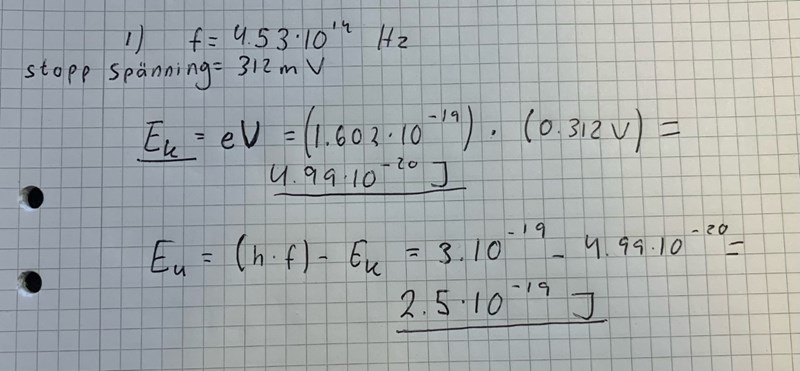 1) f = 4.53·10¹⁴ Hz
stopp spänning = 312 mV
Eₖ = eV = (1.602·10⁻¹⁹) · (0.312 V) =
4.99·10⁻²⁰ J
Eᵤ = (h·f) - Eₖ = 3·10⁻¹⁹ - 4.99·10⁻²⁰ =
2.5·10⁻¹⁹ J